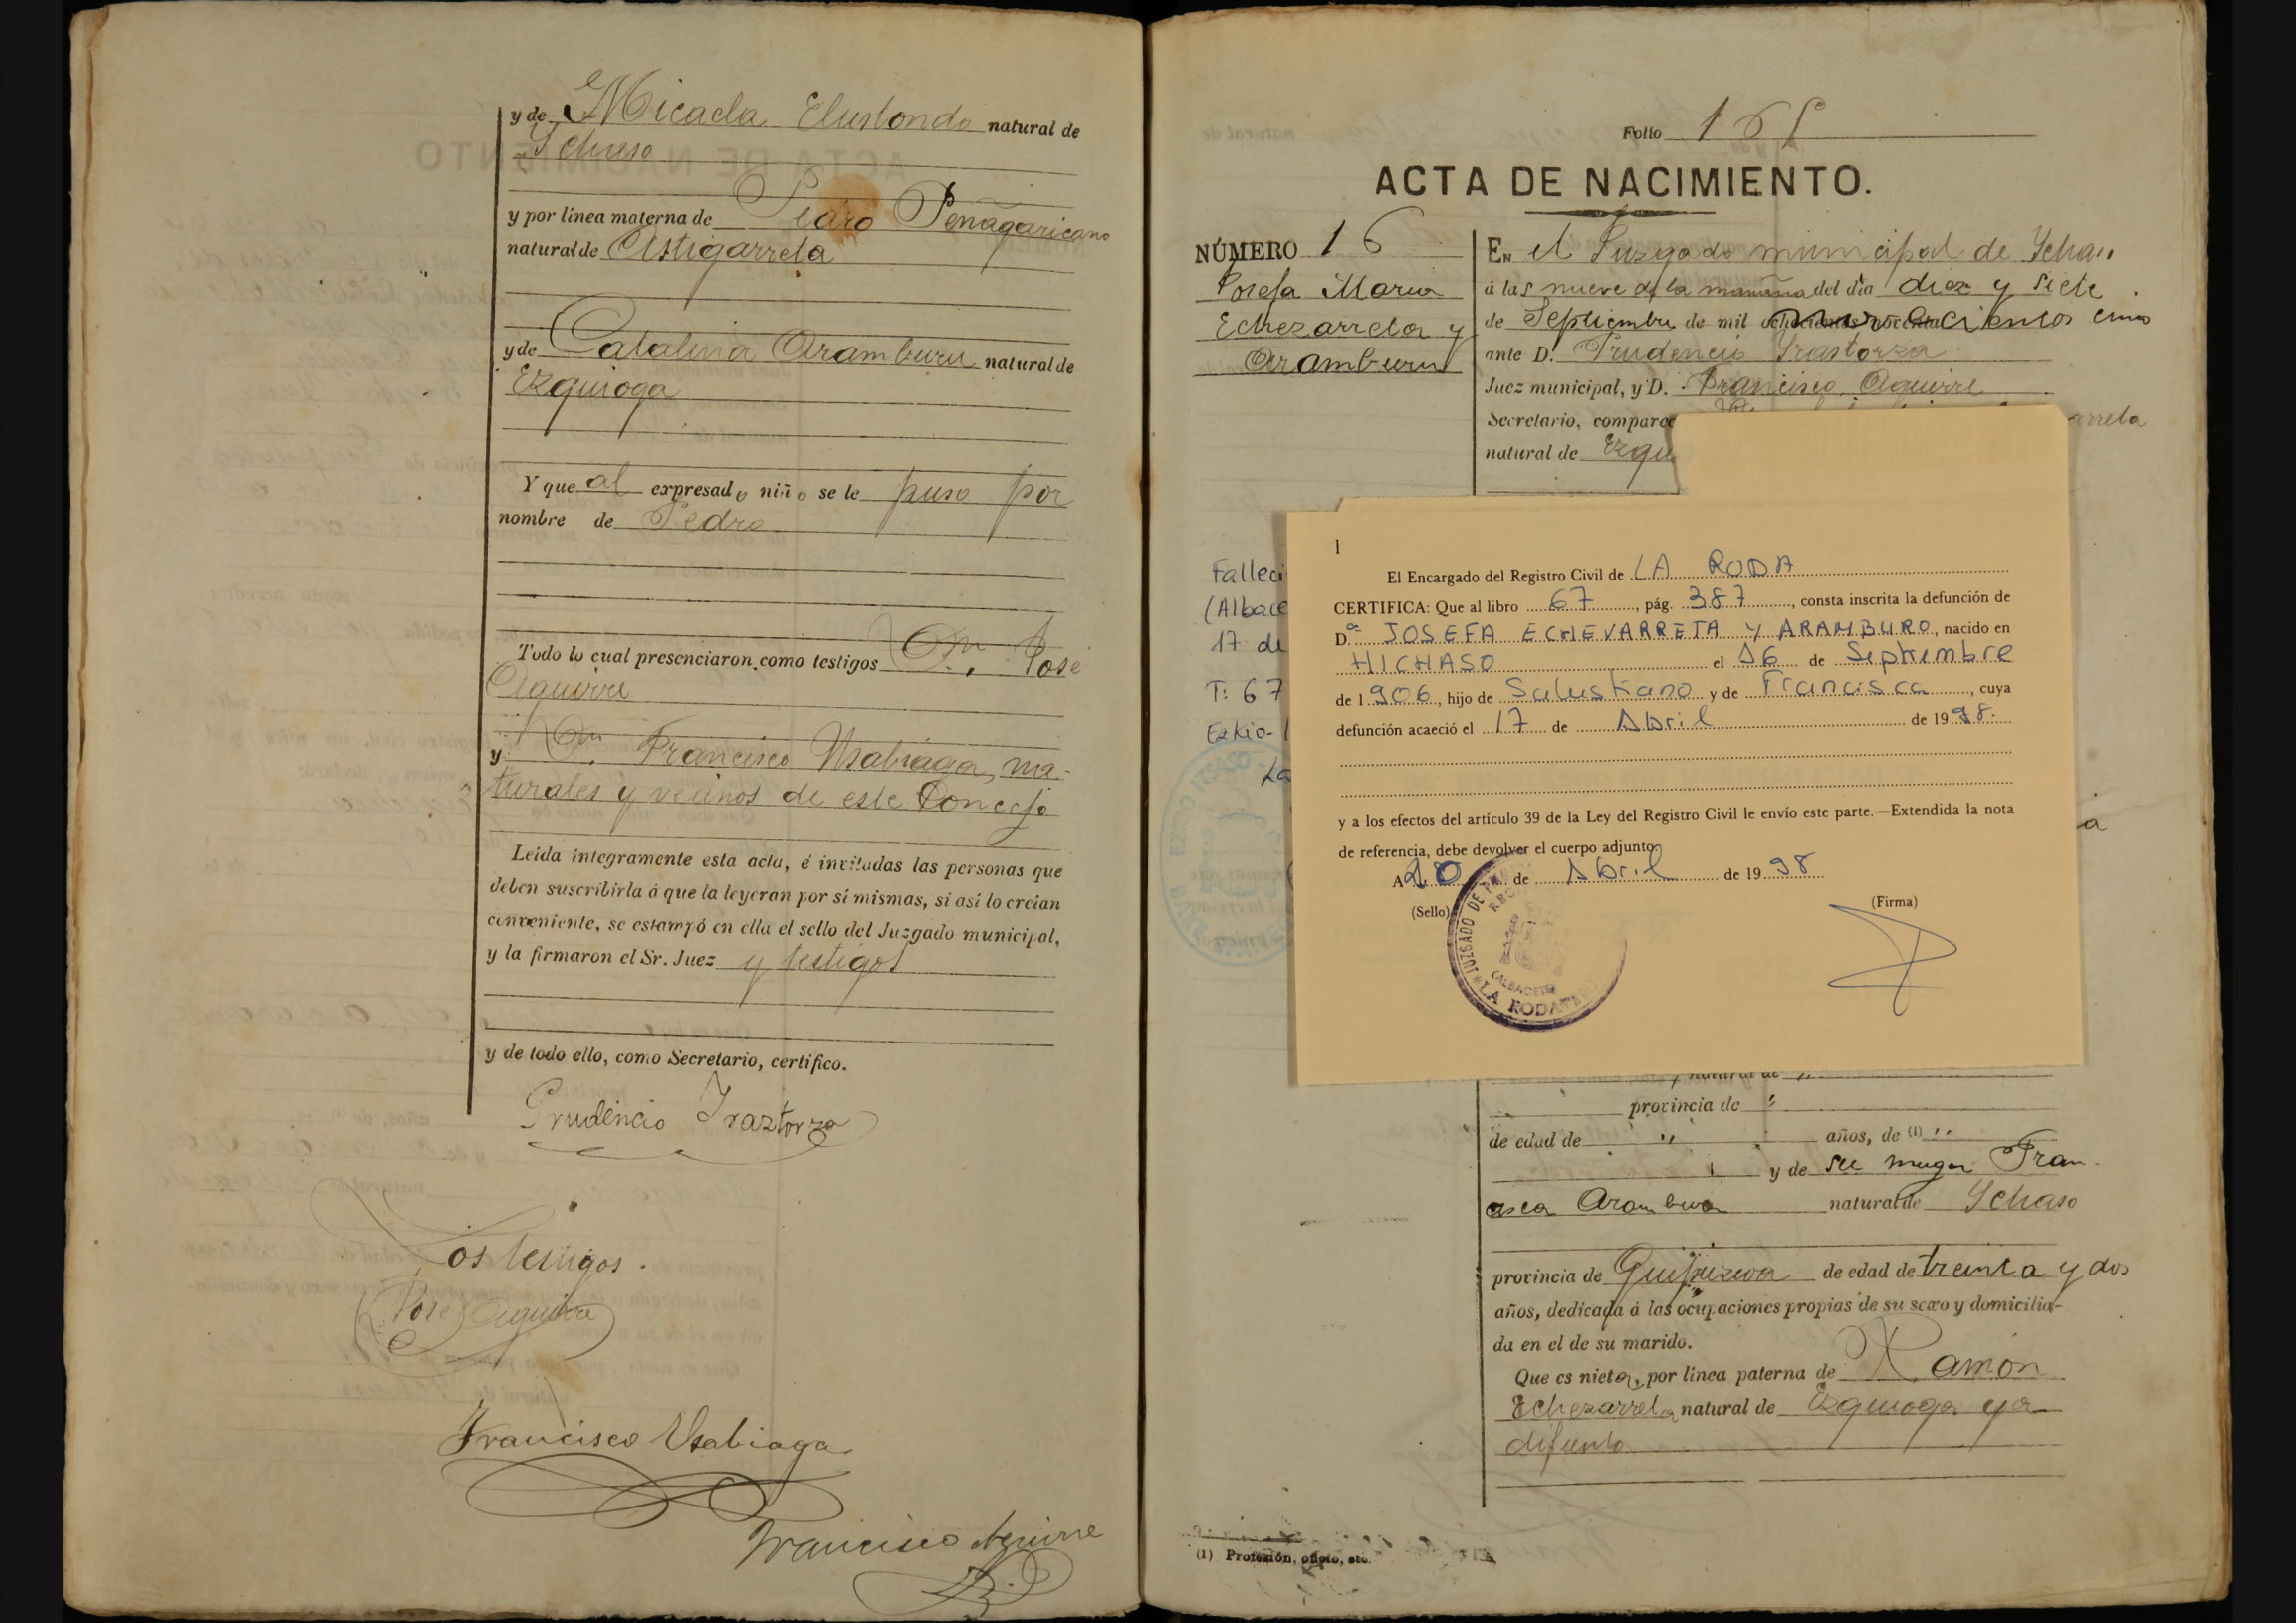 y de Micaela Elustondo natural de
Ychaso
y por linea materna de Pedro Peñagaricano
natural de Astigarreta
y de Catalina Aramburu natural de
Ezquioga
Y que al expresado niño se le puso por
nombre de Pedro
Todo lo cual presenciaron como testigos Dn. José
Aguirre
y Dn. Francisco Usabiaga, na-
turales y vecinos de este Concejo
Leida íntegramente esta acta, é invitadas las personas que
deben suscribirla á que la leyeran por sí mismas, si así lo creían
conveniente, se estampó en ella el sello del Juzgado municipal,
y la firmaron el Sr. Juez y testigos
y de todo ello, como Secretario, certifico.
Prudencio Yraztorza
Los testigos.
José Aguirre
Francisco Usabiaga
Francisco Aguirre
Folio 165
ACTA DE NACIMIENTO.
NÚMERO 16
Josefa Maria
Echezarreta y
Aramburu
EN el Juzgado municipal de Ychaso
á las nueve de la mañana del dia diez y siete
de Septiembre de mil novecientos cinco
ante D. Prudencio Yrastorza
Juez municipal, y D. Francisco Aguirre
Secretario, comparec
arreta
natural de Ezqu
Falleci
(Albace
17 de
T: 67
Ezkio-I
La
1
El Encargado del Registro Civil de LA RODA
CERTIFICA: Que al libro 67, pág. 387, consta inscrita la defunción de
D.ª JOSEFA ECHEVARRETA Y ARAMBURO, nacido en
HICHASO el 16 de Septiembre
de 1906, hijo de Salustiano y de Francisca, cuya
defunción acaeció el 17 de Abril de 1998.
y a los efectos del artículo 39 de la Ley del Registro Civil le envío este parte.—Extendida la nota
de referencia, debe devolver el cuerpo adjunto.
A 20 de Abril de 1998
(Sello)
(Firma)
JUZGADO DE
(ALBACETE)
LA RODA
a
, natural de "
provincia de "
de edad de " años, de (1) "
y de su muger Fran-
cisca Aramburu natural de Ychaso
provincia de Guipuzcoa de edad de treinta y dos
años, dedicada á las ocupaciones propias de su sexo y domicilia-
da en el de su marido.
Que es nieta, por linea paterna de Ramón
Echezarreta natural de Ezquioga ya
difunto
(1) Profesión, oficio, etc.